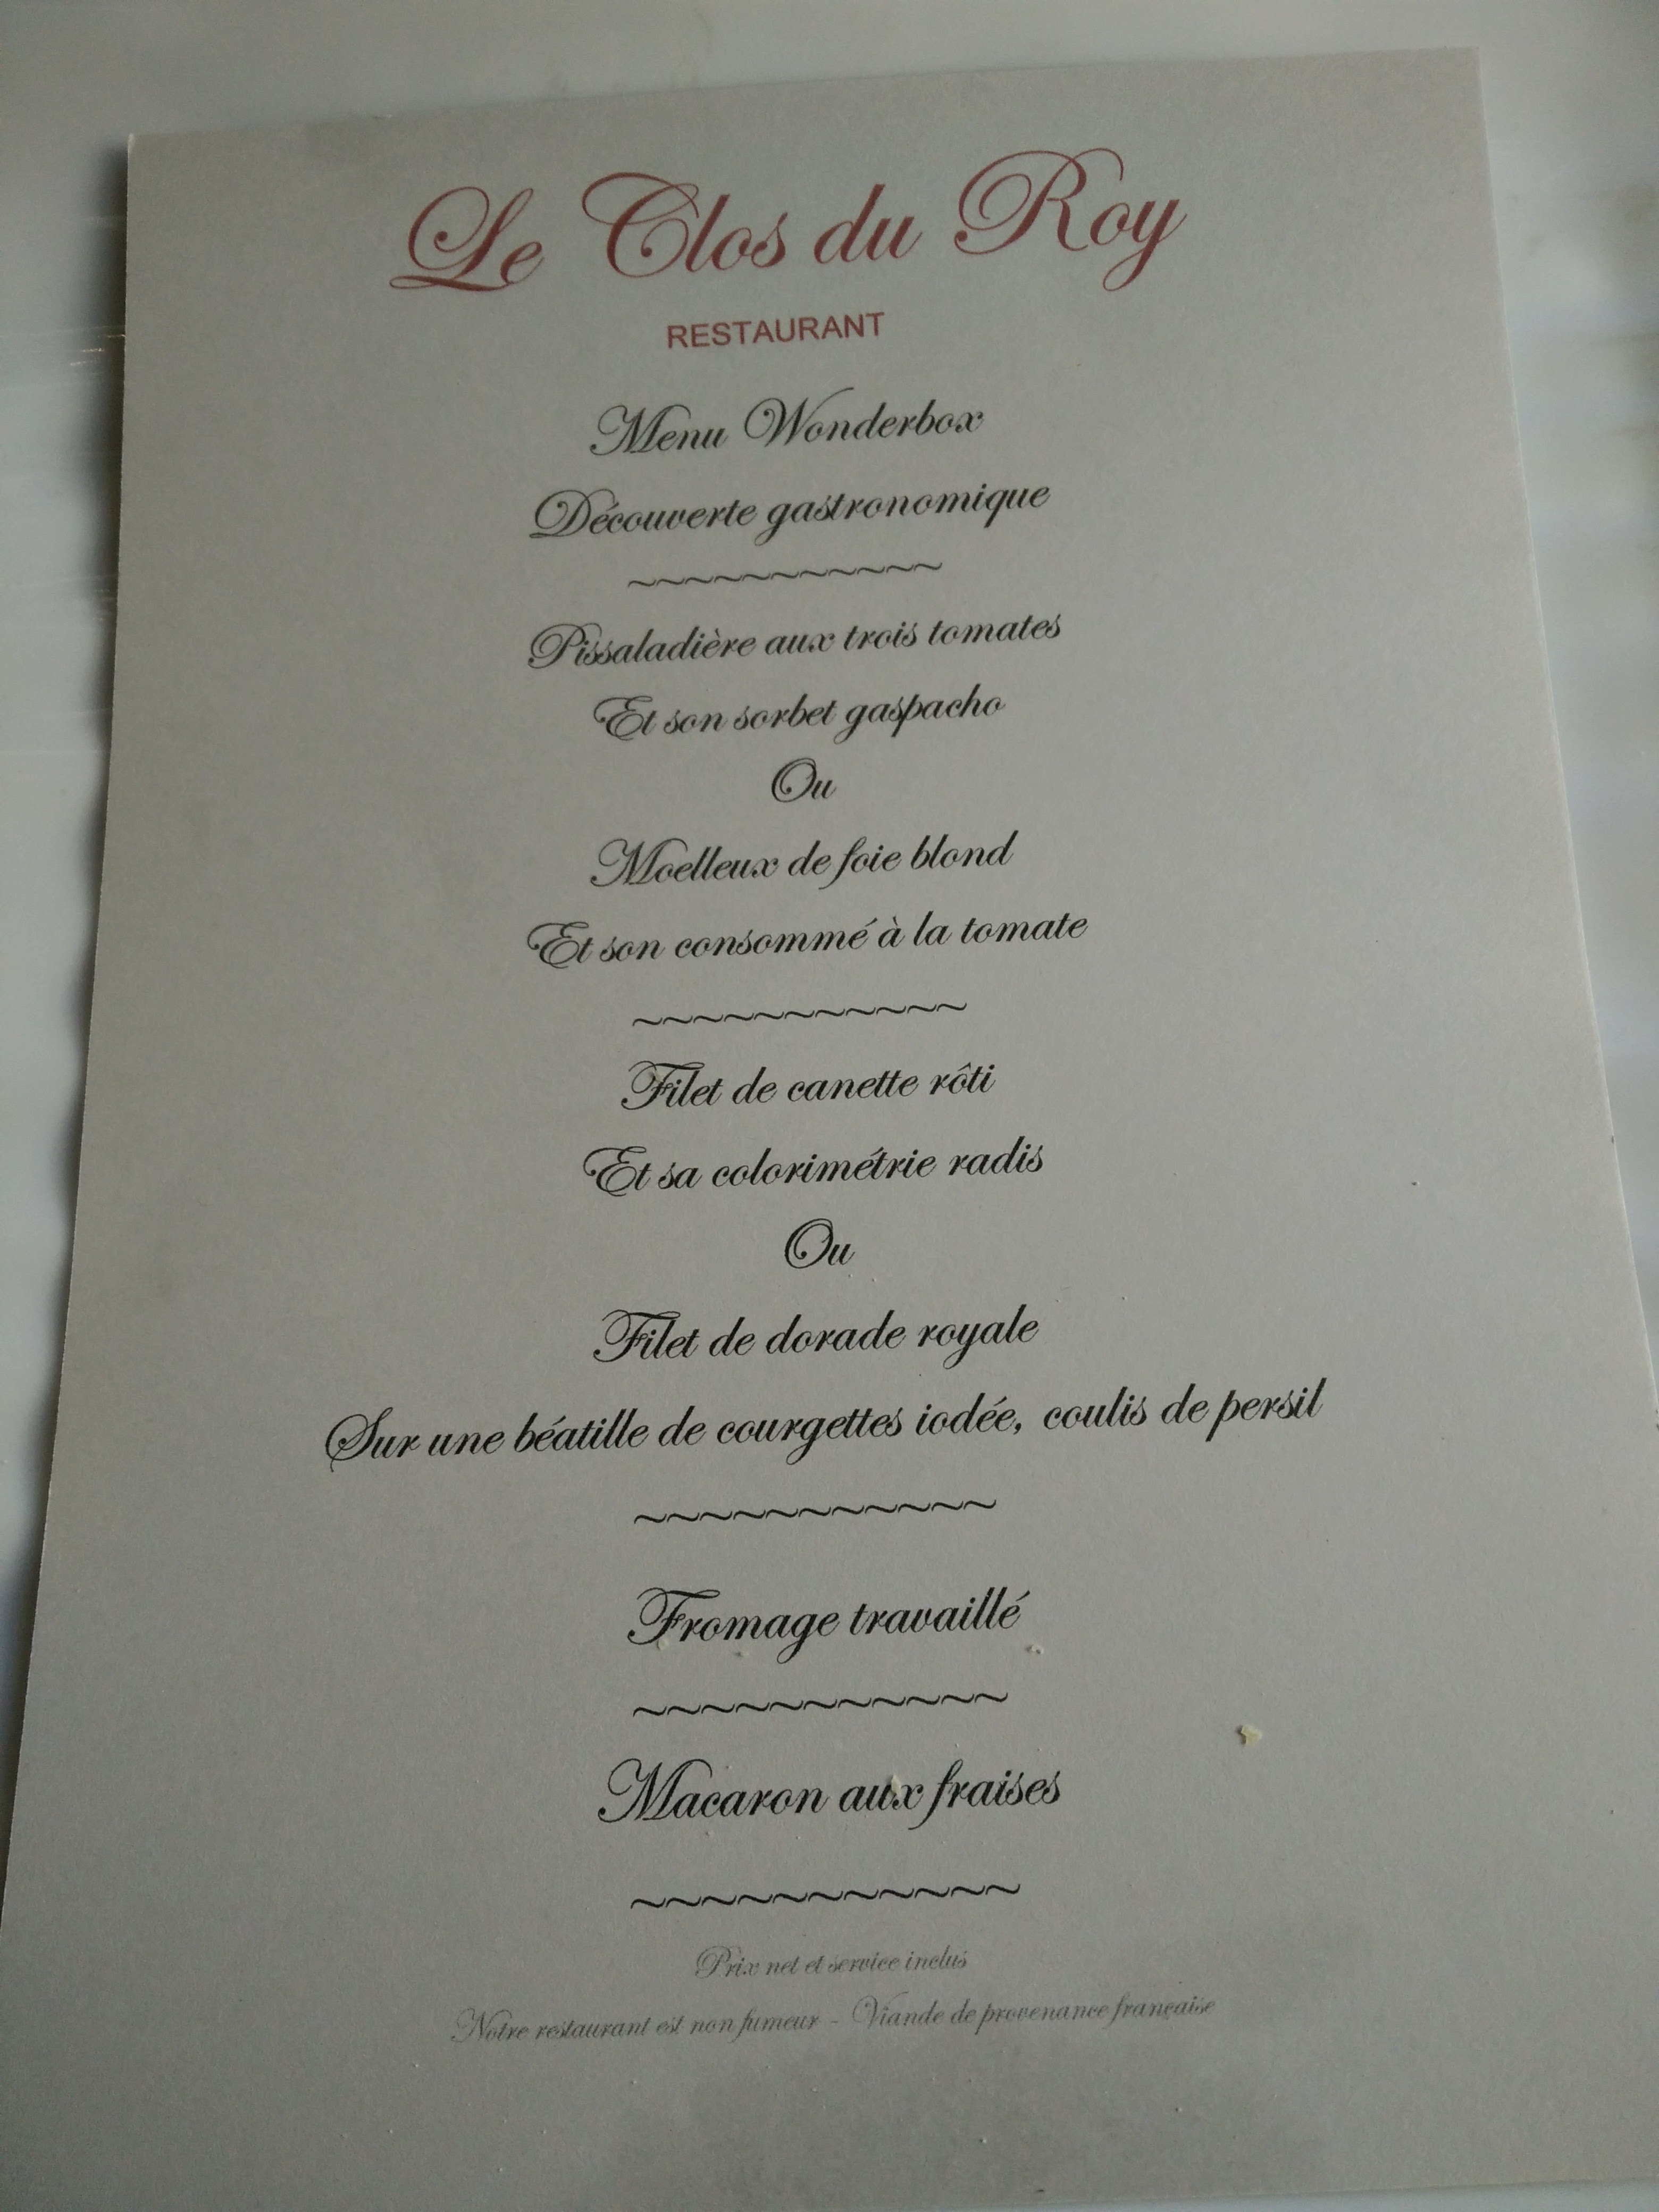 Le Clos du Roy
RESTAURANT
Menu Wonderbox
Découverte gastronomique
~~~~~~~~~~~
Pissaladière aux trois tomates
Et son sorbet gaspacho
Ou
Moelleux de foie blond
Et son consommé à la tomate
~~~~~~~~~~~
Filet de canette rôti
Et sa colorimétrie radis
Ou
Filet de dorade royale
Sur une béatille de courgettes iodée, coulis de persil
~~~~~~~~~~~
Fromage travaillé
~~~~~~~~~~~
Macaron aux fraises
~~~~~~~~~~~
Prix net et service inclus
Notre restaurant est non fumeur - Viande de provenance française